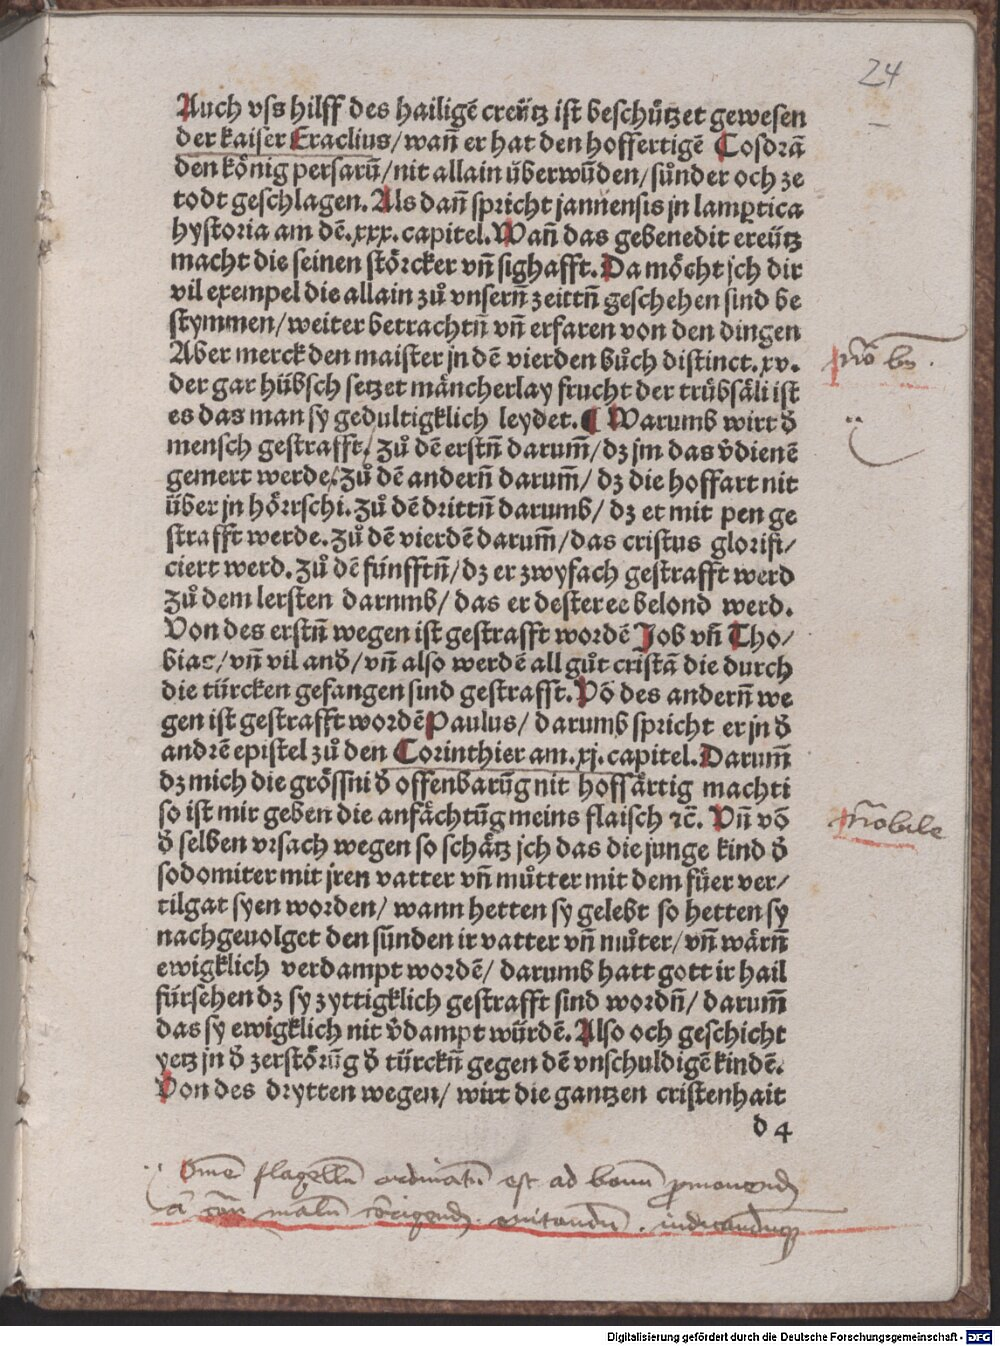 24
Auch vſs hilff des hailigē creütz iſt beſchützet geweſen
der kaiſer Eraclius/wañ er hat den hoffertigē Coſdrā
den könig perſarū/nit allain überwūden/ſünder och ze
todt geſchlagen. Als dañ ſpricht jannenſis jn lamꝑtica
hyſtoria am dē.xxx.capitel. Wañ das gebenedit creütz
macht die ſeinen ſtörcker vñ ſighafft. Da möcht jch dir
vil exempel die allain zů vnſerñ zeittñ geſchehen ſind be
ſtymmen/weiter betrachtñ vñ erfaren von den dingen
Aber merck den maiſter jn dē vierden bůch diſtinct.xv.
der gar hübſch ſetzet mancherlay frucht der trübſäli iſt
es das man ſy gedultigklich leydet. ¶ Warumb wirt d̕
menſch geſtrafft/ zů dē erſtñ darum̄/dz jm das v̕dienē
gemert werde/zů dē anderñ darum̄/ dz die hoffart nit
über jn hörrſchi. zů dē drittñ darumb/ dz et mit pen ge
ſtrafft werde. zů dē vierdē darum̄/das criſtus glorifi/
ciert werd. zů dē fünfftñ/dz er zwyfach geſtrafft werd
zů dem lerſten darnmb/ das er deſter ee belond werd.
Von des erſtñ wegen iſt geſtrafft wordē Job vñ Tho/
bias/vñ vil and̕/vñ alſo werdē all gůt criſtā die durch
die türcken gefangen ſind geſtrafft. Vō des anderñ we
gen iſt geſtrafft wordē Paulus/ darumb ſpricht er jn d̕
andrē epiſtel zů den Corinthier am.xj.capitel. Darum̄
dz mich die gröſſni d̕ offenbarūg nit hoffärtig machti
ſo iſt mir geben die anfächtūg meins flaiſch ⁊c̄. Vñ vō
d̕ ſelben vrſach wegen ſo ſchätz jch das die junge kind d̕
ſodomiter mit jren vatter vñ můtter mit dem füer ver/
tilgat ſyen worden/ wann hetten ſy gelebt ſo hetten ſy
nachgeuolget den ſünden ir vatter vñ můter/vñ wärñ
ewigklich verdampt wordē/ darumb hatt gott ir hail
fürſehen dz ſy zyttigklich geſtrafft ſind wordñ/ darum̄
das ſy ewigklich nit v̕dampt würdē. Alſo och geſchicht
yetz jn d̕ zerſtörūg d̕ türckñ gegen dē vnſchuldigē kindē.
Von des drytten wegen/ wirt die gantzen criſtenhait
d 4
nōbile
Om̄e flagellū ordinatū est ad bonū ꝓmouendū
malū corrigendū . euitandū . iudicandūqꝫ
Digitalisierung gefördert durch die Deutsche Forschungsgemeinschaft - DFG